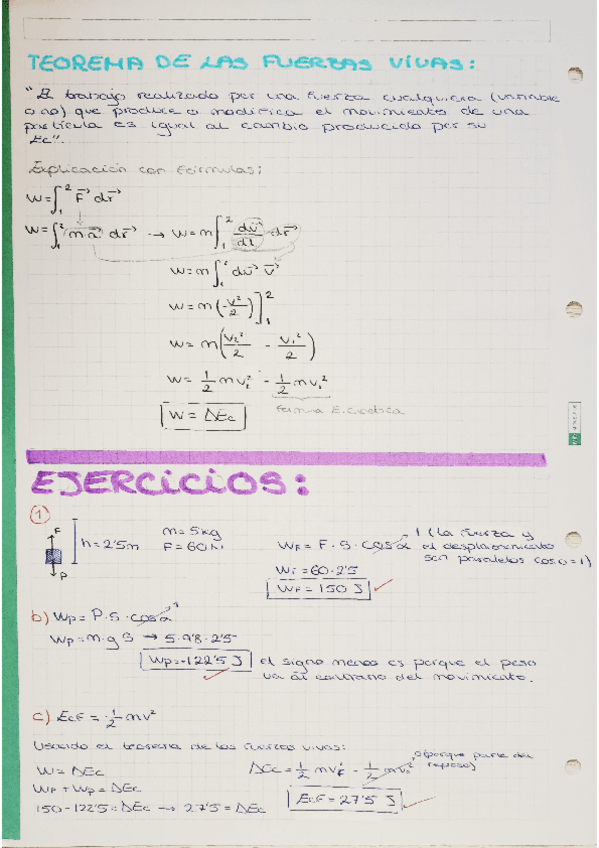 TEOREMA DE LAS FUERZAS VIVAS:
"El trabajo realizado por una fuerza cualquiera (variable
o no) que produce o modifica el movimiento de una
partícula es igual al cambio producido por su
Ec".
Explicación con Fórmulas:
W = ∫₁² F⃗ dr⃗
W = ∫₁² m a⃗ dr⃗ → W = m ∫₁² dv⃗/dt · dr⃗
W = m ∫₁² dv⃗ v⃗
W = m (v²/2)]₁²
W = m (v₂²/2 - v₁²/2)
W = 1/2 mv₂² - 1/2 mv₁²
Fórmula E.cinética
W = ΔEc
EJERCICIOS:
1
F
h = 2'5m
P
m = 5kg
F = 60N
WF = F · S · cos α 1 (la fuerza y
el desplazamiento
son paralelos cos 0 = 1)
WF = 60 · 2'5
WF = 150 J
b) Wp = P · S · cos α 1
Wp = m · g S → 5 · 9'8 · 2'5
Wp = -122'5 J el signo menos es porque el peso
va al contrario del movimiento.
c) EcF = 1/2 mv²
Usando el teorema de las fuerzas vivas:
W = ΔEc
ΔEc = 1/2 mvF² - 1/2 mv₀² 0 (porque parte del
reposo)
WF + Wp = ΔEc
150 - 122'5 = ΔEc → 27'5 = ΔEc
EcF = 27'5 J